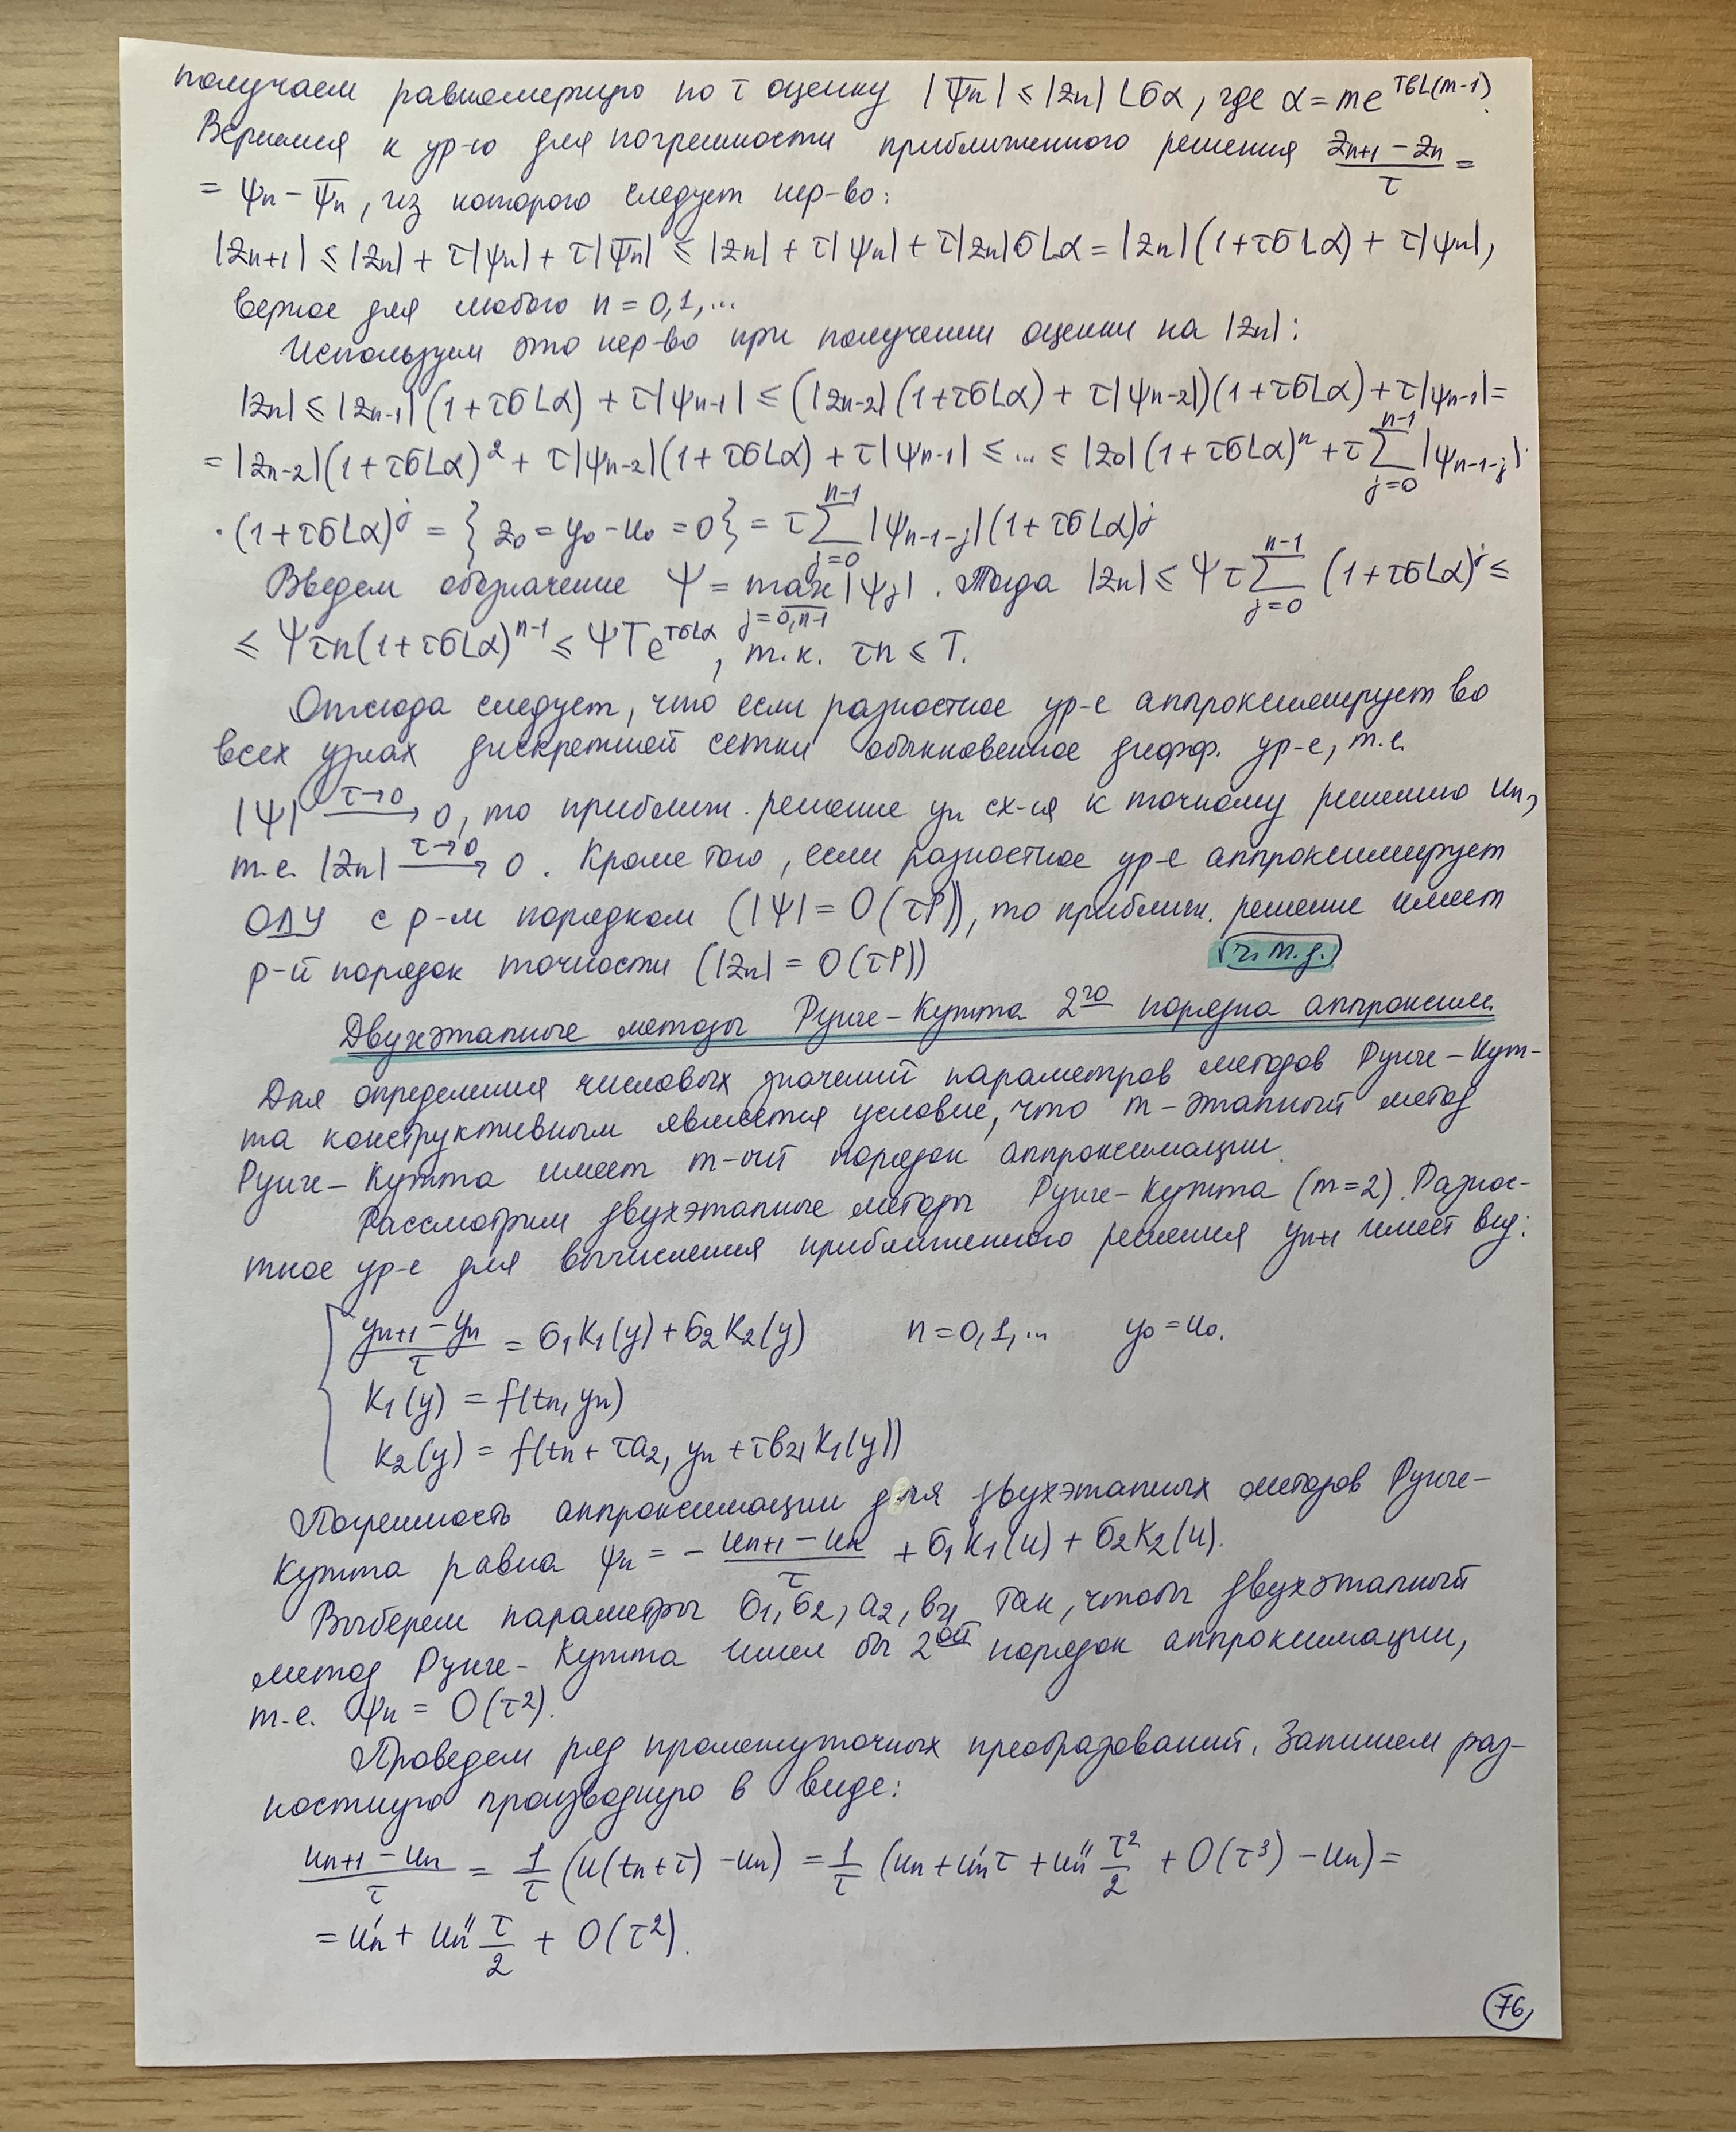 получаем равномерную по τ оценку |ψ̅n| ≤ |zn| Lσα, где α = me^(TбL(m-1)).
Вернемся к ур-ю для погрешности приближенного решения (zn+1 - zn)/τ =
= ψn - ψ̅n, из которого следует нер-во:
|zn+1| ≤ |zn| + τ|ψn| + τ|ψ̅n| ≤ |zn| + τ|ψn| + τ|zn|σLα = |zn|(1+τσLα) + τ|ψn|,
верное для любого n = 0,1,...
Используем это нер-во при получении оценки на |zn|:
|zn| ≤ |zn-1|(1+τσLα) + τ|ψn-1| ≤ (|zn-2|(1+τσLα) + τ|ψn-2|)(1+τσLα) + τ|ψn-1| =
= |zn-2|(1+τσLα)² + τ|ψn-2|(1+τσLα) + τ|ψn-1| ≤ ... ≤ |z0|(1+τσLα)ⁿ + τ ∑_{j=0}^{n-1} |ψn-1-j| ·
· (1+τσLα)^j = { z0 = y0 - u0 = 0 } = τ ∑_{j=0}^{n-1} |ψn-1-j|(1+τσLα)^j
Введем обозначение ψ = max_{j=0,n-1} |ψj|. Тогда |zn| ≤ ψτ ∑_{j=0}^{n-1} (1+τσLα)^j ≤
≤ ψτn(1+τσLα)^(n-1) ≤ ψTe^(TσLα), т.к. τn ≤ T.
Отсюда следует, что если разностное ур-е аппроксимирует во
всех узлах дискретной сетки обыкновенное дифф. ур-е, т.е.
|ψ| →(τ→0) 0, то приближ. решение yn сх-ся к точному решению un,
т.е. |zn| →(τ→0) 0. Кроме того, если разностное ур-е аппроксимирует
ОДУ с p-м порядком (|ψ| = O(τ^p)), то приближ. решение имеет
p-й порядок точности (|zn| = O(τ^p))
ч.т.д.
Двухэтапные методы Рунге-Кутта 2го порядка аппроксим.
Для определения числовых значений параметров методов Рунге-Кут-
та конструктивным является условие, что m-этапный метод
Рунге-Кутта имеет m-ый порядок аппроксимации.
Рассмотрим двухэтапные методы Рунге-Кутта (m=2). Разнос-
тное ур-е для вычисления приближенного решения yn+1 имеет вид:
(yn+1 - yn)/τ = σ1K1(y) + σ2K2(y) n = 0,1,... y0 = u0.
K1(y) = f(tn, yn)
K2(y) = f(tn + τa2, yn + τb21K1(y))
Погрешность аппроксимации для двухэтапных методов Рунге-
Кутта равна ψn = - (un+1 - un)/τ + σ1K1(u) + σ2K2(u).
Выберем параметры σ1, σ2, a2, b21 так, чтобы двухэтапный
метод Рунге-Кутта имел бы 2ой порядок аппроксимации,
т.е. ψn = O(τ²).
Проведем ряд промежуточных преобразований. Запишем раз-
ностную производную в виде:
(un+1 - un)/τ = 1/τ (u(tn+τ) - un) = 1/τ (un + u'nτ + u''n τ²/2 + O(τ³) - un) =
= u'n + u''n τ/2 + O(τ²).
76